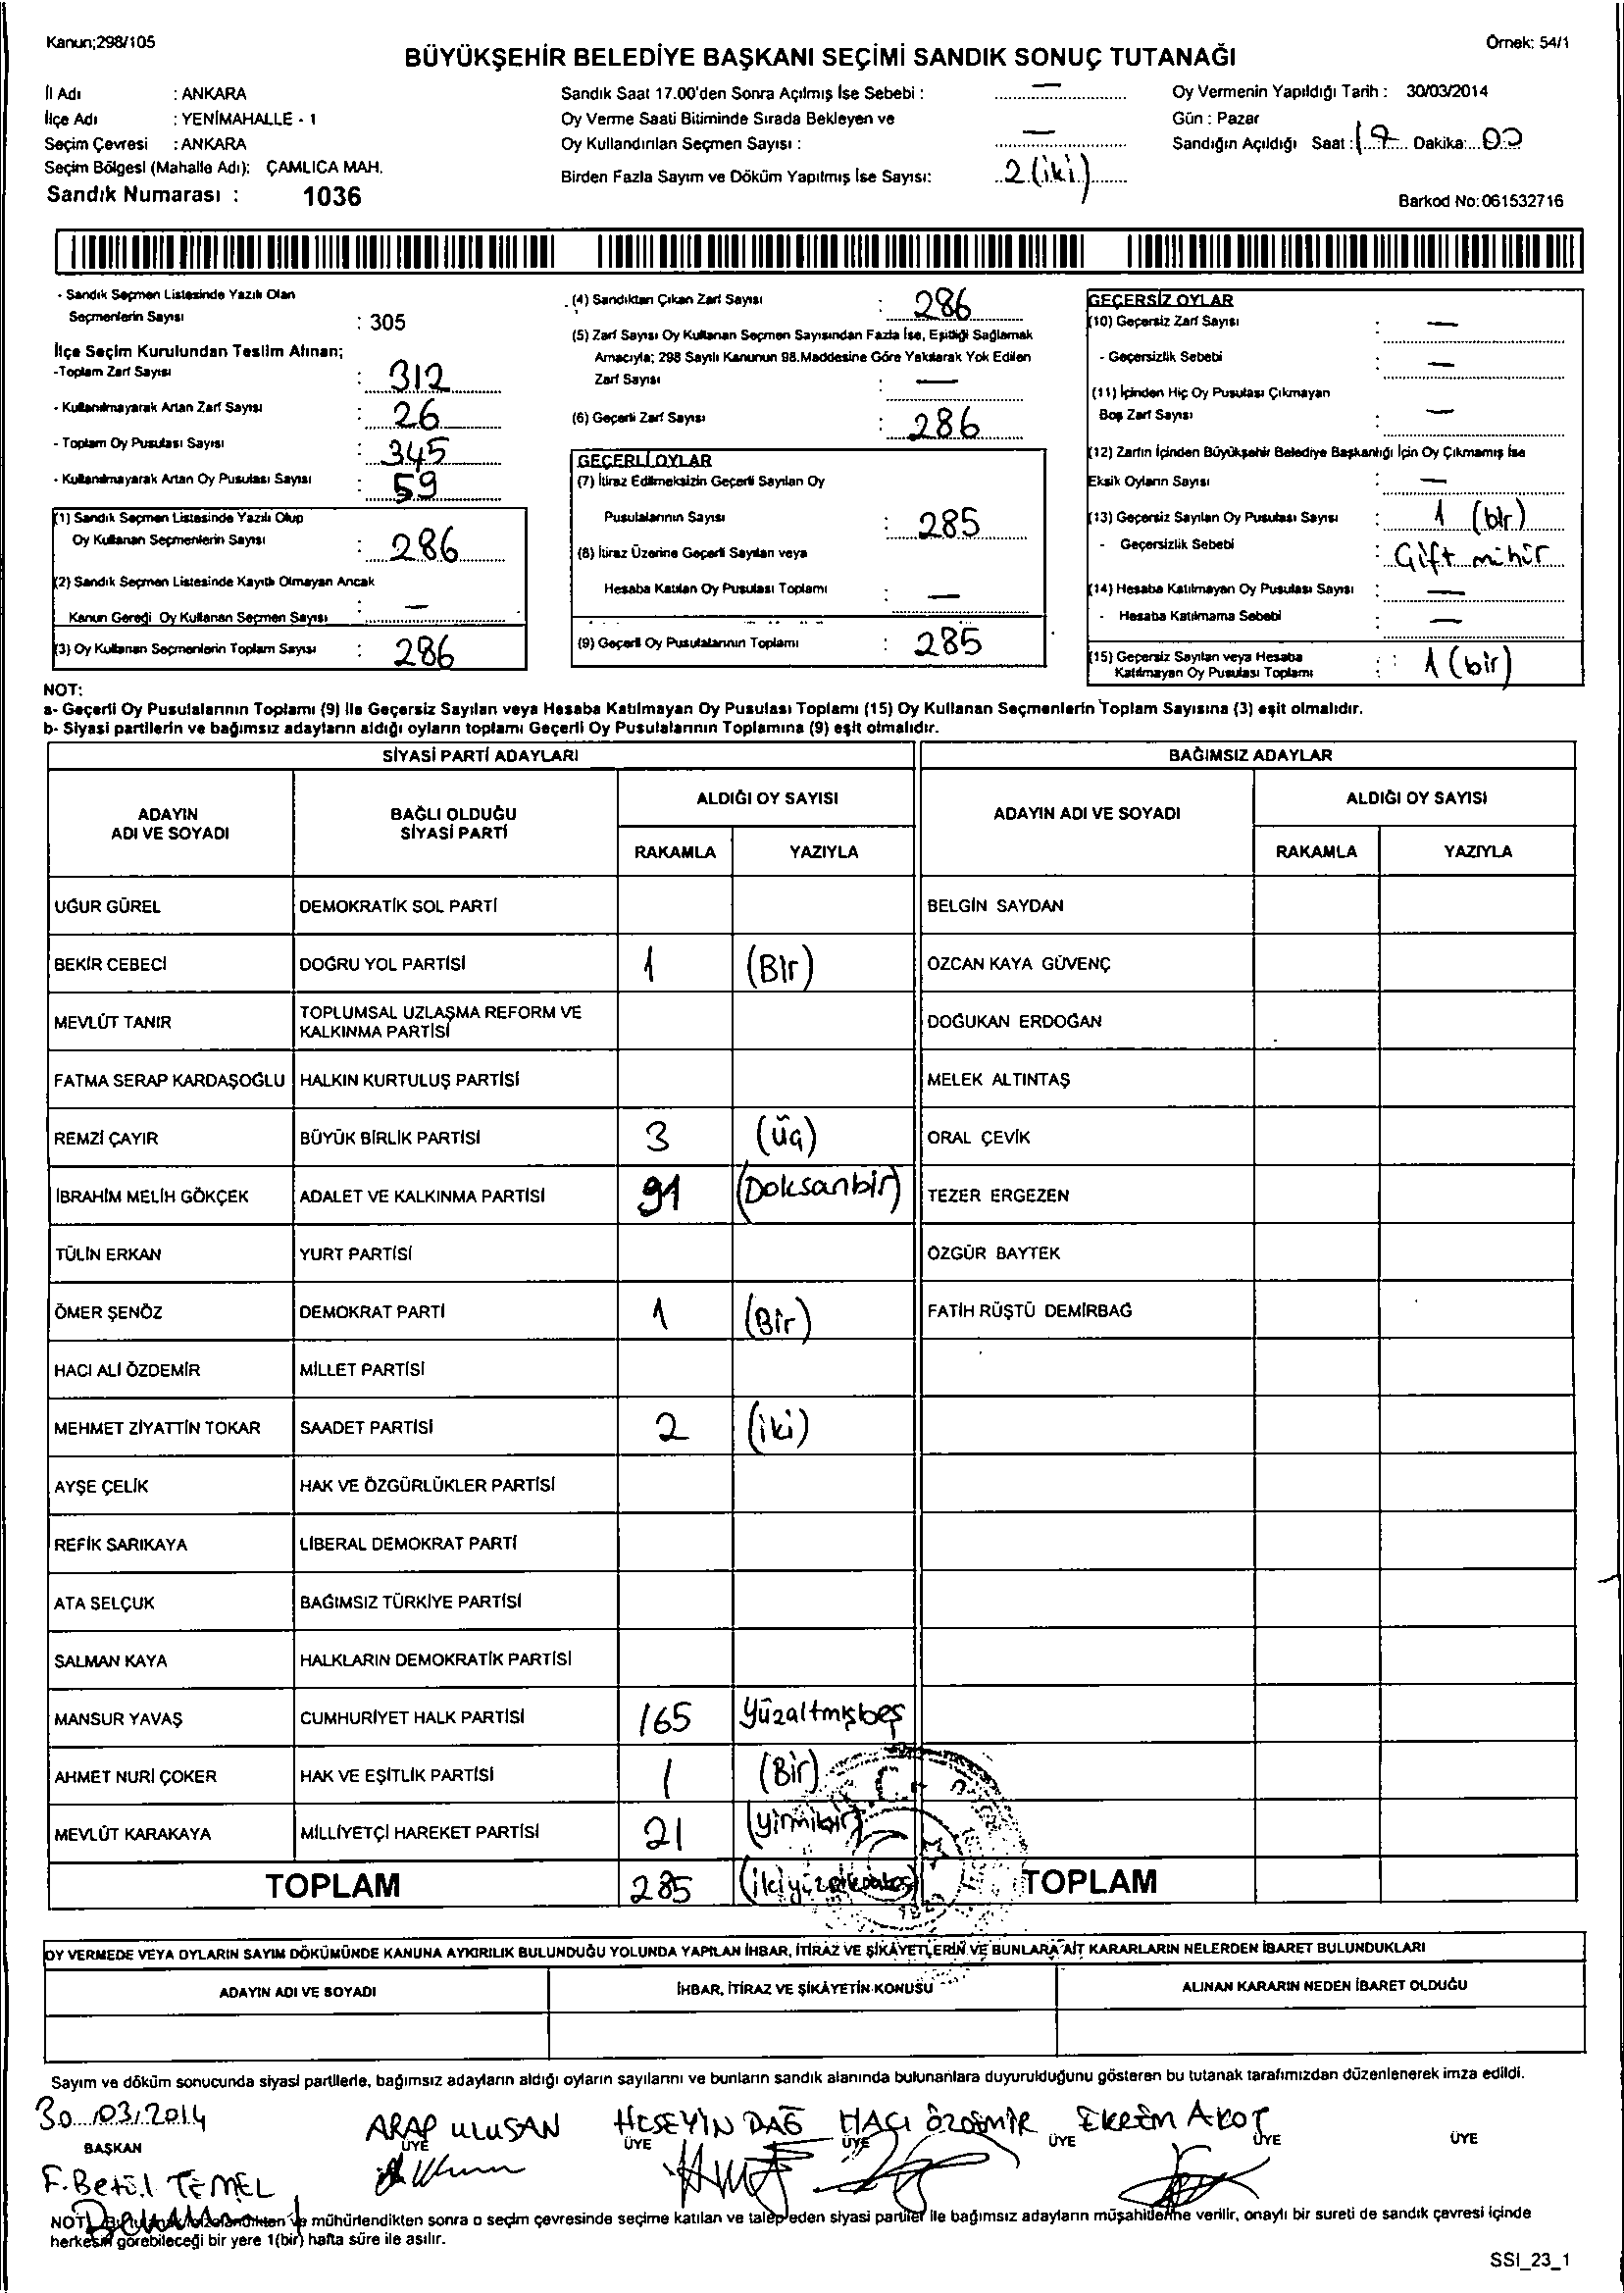 Kanun;298/105
Örnek: 54/1
BÜYÜKŞEHİR BELEDİYE BAŞKANI SEÇİMİ SANDIK SONUÇ TUTANAĞI
İl Adı : ANKARA
İlçe Adı : YENİMAHALLE - 1
Seçim Çevresi : ANKARA
Seçim Bölgesi (Mahalle Adı): ÇAMLICA MAH.
Sandık Numarası : 1036
Sandık Saat 17.00'den Sonra Açılmış İse Sebebi : —
Oy Verme Saati Bitiminde Sırada Bekleyen ve
Oy Kullandırılan Seçmen Sayısı : —
Birden Fazla Sayım ve Döküm Yapılmış İse Sayısı: 2 (iki)
Oy Vermenin Yapıldığı Tarih : 30/03/2014
Gün : Pazar
Sandığın Açıldığı Saat : 17 Dakika: 00
Barkod No:061532716
- Sandık Seçmen Listesinde Yazılı Olan
Seçmenlerin Sayısı : 305
İlçe Seçim Kurulundan Teslim Alınan;
-Toplam Zarf Sayısı : 312
- Kullanılmayarak Artan Zarf Sayısı : 26
- Toplam Oy Pusulası Sayısı : 345
- Kullanılmayarak Artan Oy Pusulası Sayısı : 59
(1) Sandık Seçmen Listesinde Yazılı Olup
Oy Kullanan Seçmenlerin Sayısı : 286
(2) Sandık Seçmen Listesinde Kayıtlı Olmayan Ancak
Kanun Gereği Oy Kullanan Seçmen Sayısı : —
(3) Oy Kullanan Seçmenlerin Toplam Sayısı : 286
(4) Sandıktan Çıkan Zarf Sayısı : 286
(5) Zarf Sayısı Oy Kullanan Seçmen Sayısından Fazla İse, Eşitliği Sağlamak
Amacıyla; 298 Sayılı Kanunun 98.Maddesine Göre Yakılarak Yok Edilen
Zarf Sayısı : —
(6) Geçerli Zarf Sayısı : 286
GEÇERLİ OYLAR
(7) İtiraz Edilmeksizin Geçerli Sayılan Oy
Pusulalarının Sayısı : 285
(8) İtiraz Üzerine Geçerli Sayılan veya
Hesaba Katılan Oy Pusulası Toplamı : —
(9) Geçerli Oy Pusulalarının Toplamı : 285
GEÇERSİZ OYLAR
(10) Geçersiz Zarf Sayısı : —
- Geçersizlik Sebebi : —
(11) İçinden Hiç Oy Pusulası Çıkmayan
Boş Zarf Sayısı : —
(12) Zarfın İçinden Büyükşehir Belediye Başkanlığı İçin Oy Çıkmamış İse
Eksik Oyların Sayısı : —
(13) Geçersiz Sayılan Oy Pusulası Sayısı : 1 (bir)
- Geçersizlik Sebebi : Çift mühür
(14) Hesaba Katılmayan Oy Pusulası Sayısı : —
- Hesaba Katılmama Sebebi : —
(15) Geçersiz Sayılan veya Hesaba
Katılmayan Oy Pusulası Toplamı : 1 (bir)
NOT:
a- Geçerli Oy Pusulalarının Toplamı (9) İle Geçersiz Sayılan veya Hesaba Katılmayan Oy Pusulası Toplamı (15) Oy Kullanan Seçmenlerin Toplam Sayısına (3) eşit olmalıdır.
b- Siyasi partilerin ve bağımsız adayların aldığı oyların toplamı Geçerli Oy Pusulalarının Toplamına (9) eşit olmalıdır.
SİYASİ PARTİ ADAYLARI
BAĞIMSIZ ADAYLAR
ADAYIN
ADI VE SOYADI
BAĞLI OLDUĞU
SİYASİ PARTİ
ALDIĞI OY SAYISI
RAKAMLA YAZIYLA
ADAYIN ADI VE SOYADI
ALDIĞI OY SAYISI
RAKAMLA YAZIYLA
UĞUR GÜREL DEMOKRATİK SOL PARTİ BELGİN SAYDAN
BEKİR CEBECİ DOĞRU YOL PARTİSİ 1 (Bir) ÖZCAN KAYA GÜVENÇ
MEVLÜT TANIR TOPLUMSAL UZLAŞMA REFORM VE
KALKINMA PARTİSİ DOĞUKAN ERDOĞAN
FATMA SERAP KARDAŞOĞLU HALKIN KURTULUŞ PARTİSİ MELEK ALTINTAŞ
REMZİ ÇAYIR BÜYÜK BİRLİK PARTİSİ 3 (üç) ORAL ÇEVİK
İBRAHİM MELİH GÖKÇEK ADALET VE KALKINMA PARTİSİ 91 (Doksanbir) TEZER ERGEZEN
TÜLİN ERKAN YURT PARTİSİ ÖZGÜR BAYTEK
ÖMER ŞENÖZ DEMOKRAT PARTİ 1 (Bir) FATİH RÜŞTÜ DEMİRBAĞ
HACI ALİ ÖZDEMİR MİLLET PARTİSİ
MEHMET ZİYATTİN TOKAR SAADET PARTİSİ 2 (iki)
AYŞE ÇELİK HAK VE ÖZGÜRLÜKLER PARTİSİ
REFİK SARIKAYA LİBERAL DEMOKRAT PARTİ
ATA SELÇUK BAĞIMSIZ TÜRKİYE PARTİSİ
SALMAN KAYA HALKLARIN DEMOKRATİK PARTİSİ
MANSUR YAVAŞ CUMHURİYET HALK PARTİSİ 165 Yüzaltmışbeş
AHMET NURİ ÇOKER HAK VE EŞİTLİK PARTİSİ 1 (Bir)
MEVLÜT KARAKAYA MİLLİYETÇİ HAREKET PARTİSİ 21 (yirmibir)
TOPLAM 285 (ikiyüzseksenbeş) TOPLAM
OY VERMEDE VEYA OYLARIN SAYIM DÖKÜMÜNDE KANUNA AYKIRILIK BULUNDUĞU YOLUNDA YAPILAN İHBAR, İTİRAZ VE ŞİKÂYETLERİN VE BUNLARA AİT KARARLARIN NELERDEN İBARET BULUNDUKLARI
ADAYIN ADI VE SOYADI İHBAR, İTİRAZ VE ŞİKÂYETİN KONUSU ALINAN KARARIN NEDEN İBARET OLDUĞU
Sayım ve döküm sonucunda siyasi partilerle, bağımsız adayların aldığı oyların sayılarını ve bunların sandık alanında bulunanlara duyurulduğunu gösteren bu tutanak tarafımızdan düzenlenerek imza edildi.
30/03/2014
ARAP ULUSAN HÜSEYİN DAĞ HACI ÖZDEMİR EKREM AKOT
BAŞKAN ÜYE ÜYE ÜYE ÜYE ÜYE ÜYE
F. Betül TEMEL
NOT: mühürlendikten sonra o seçim çevresinde seçime katılan ve talep eden siyasi partiler ile bağımsız adayların müşahitlerine verilir, onaylı bir sureti de sandık çevresi içinde
herkesin görebileceği bir yere 1(bir) hafta süre ile asılır.
SSI_23_1